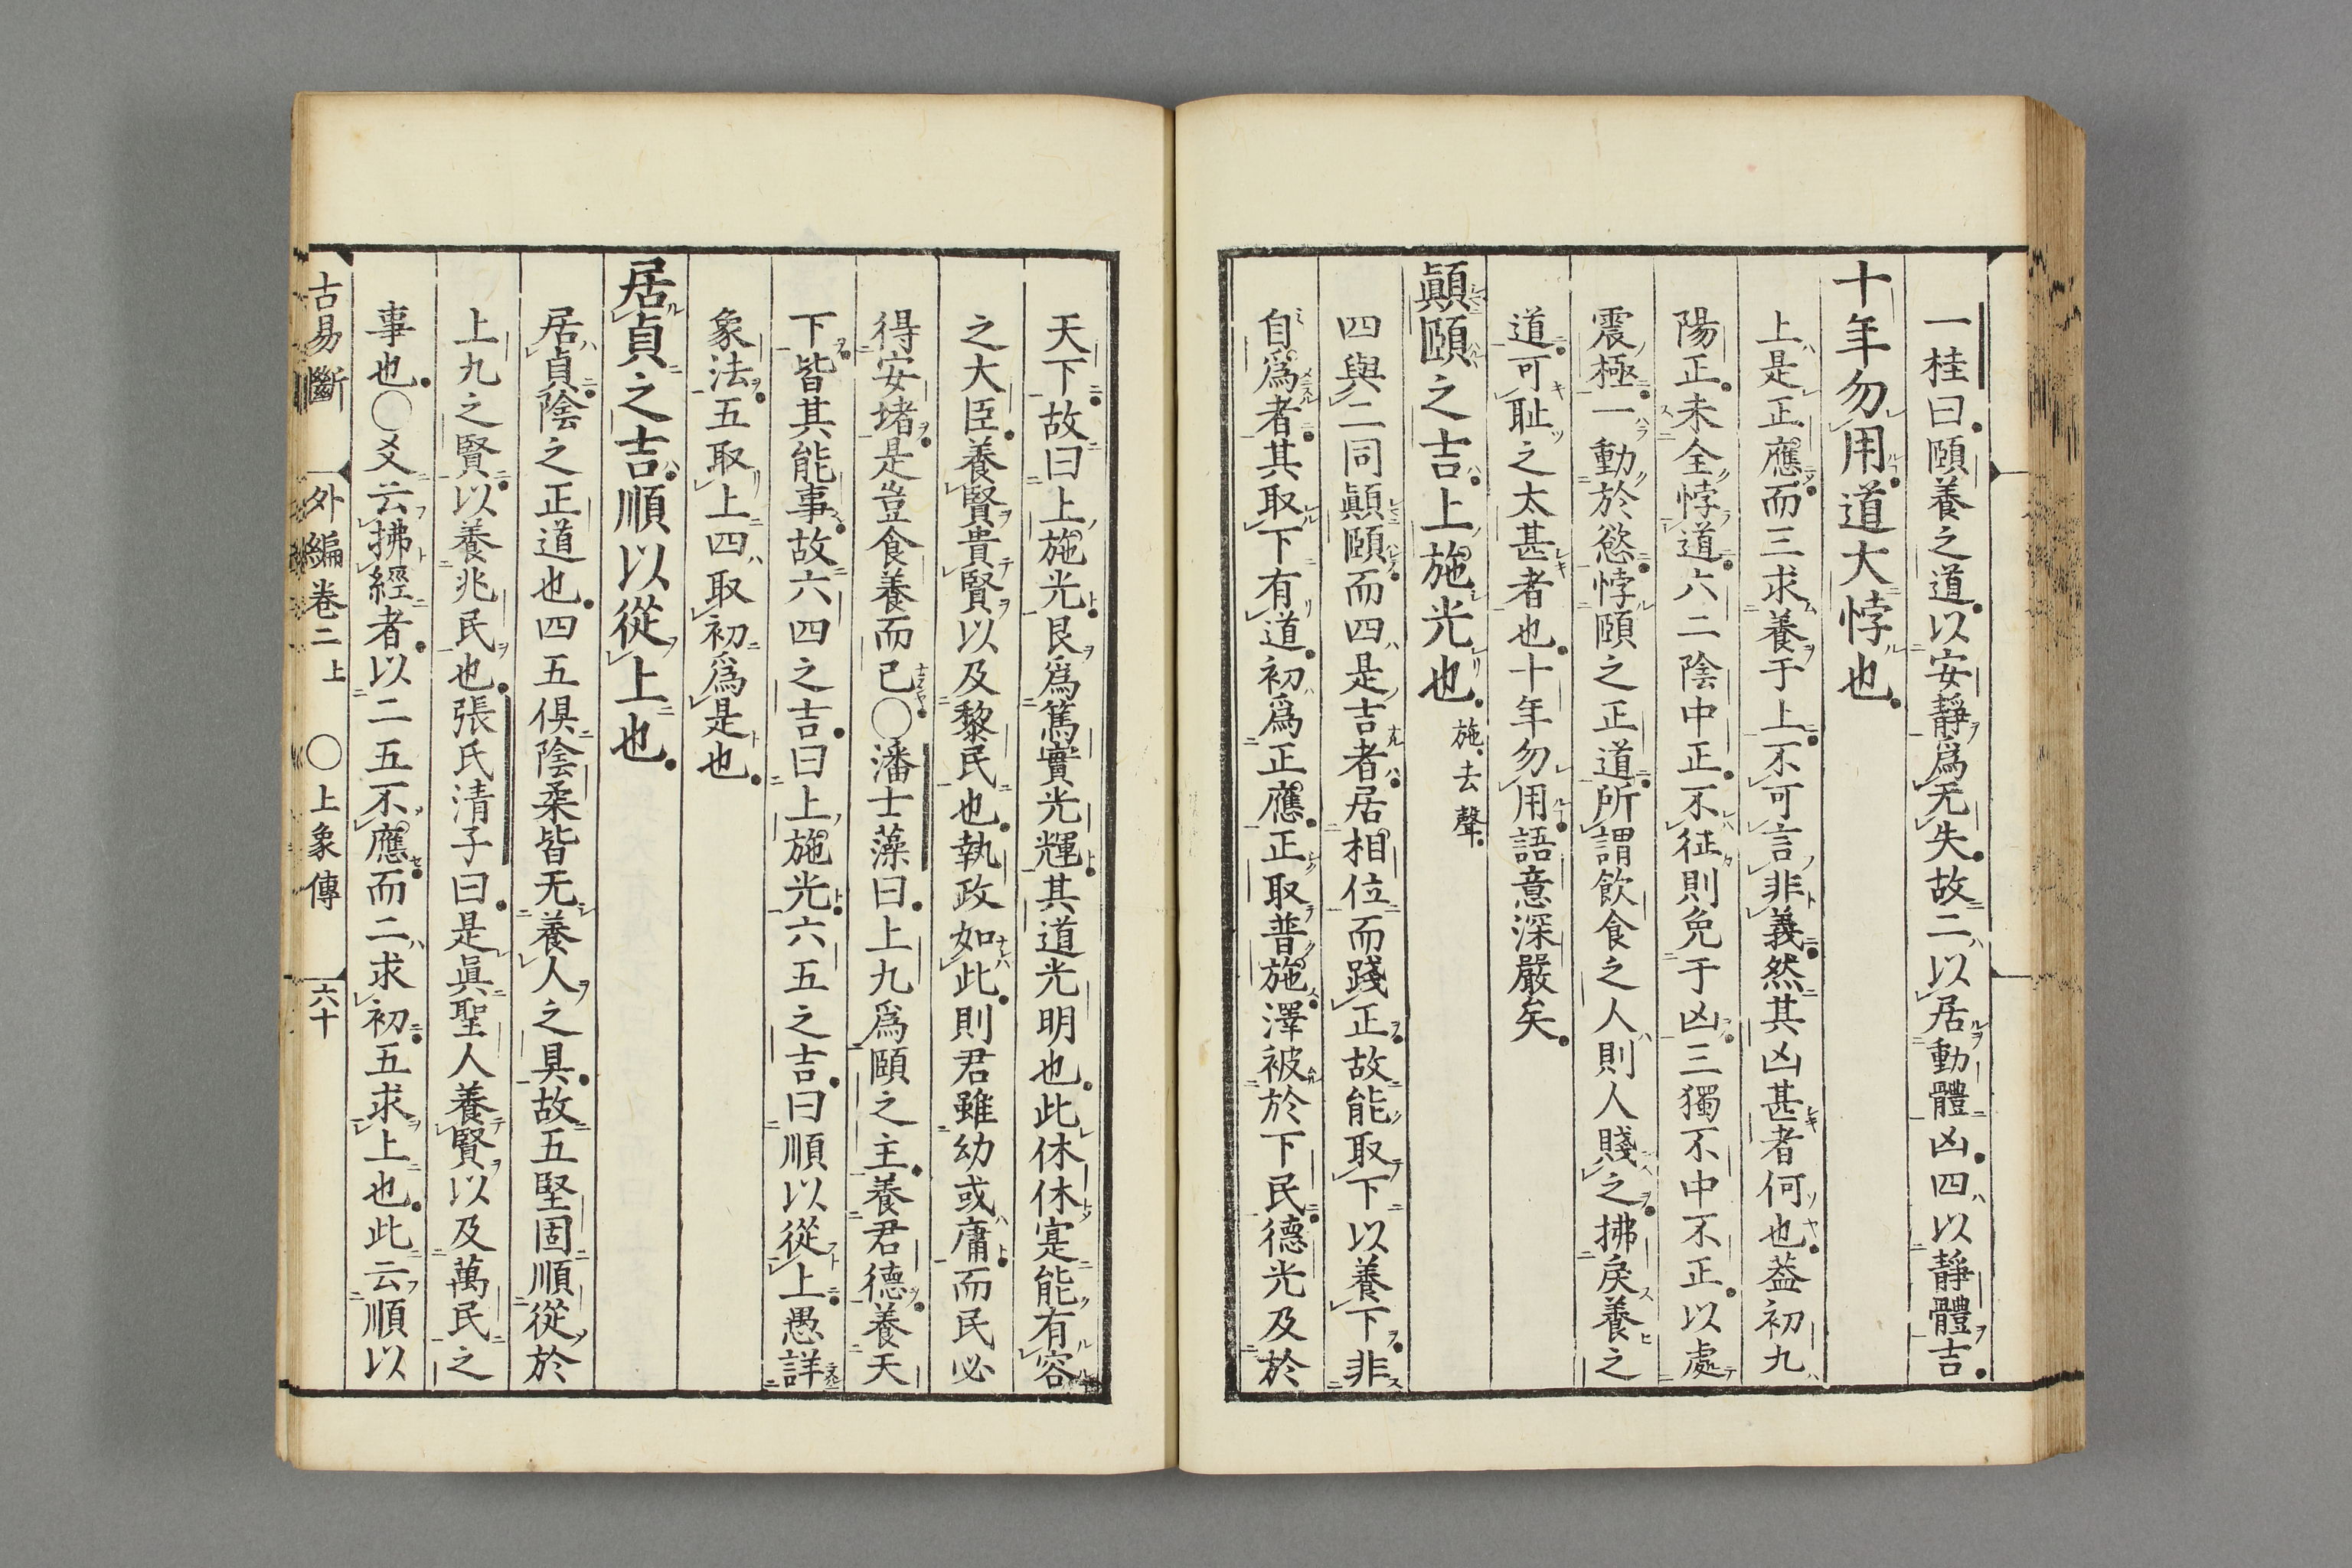 一桂曰頤養之道以安靜爲无失故二以居動體凶四以靜體吉
十年勿用道大悖也
上是正應而三求養于上不可言非義然其凶甚者何也葢初九
陽正未全悖道六二陰中正不征則免于凶三獨不中不正以處
震極一動於慾悖頤之正道所謂飲食之人則人賤之拂戾養之
道可耻之太甚者也十年勿用語意深嚴矣
顚頤之吉上施光也施去聲
四與二同顚頤而四是吉者居相位而踐正故能取下以養下非
自爲者其取下有道初爲正應正取普施澤被於下民德光及於
天下故曰上施光艮爲篤實光輝其道光明也此休休寔能有容
之大臣養賢貴賢以及黎民也執政如此則君雖幼或庸而民必
得安堵是豈食養而已〇潘士藻曰上九爲頤之主養君德養天
下皆其能事故六四之吉曰上施光六五之吉曰順以從上愚詳
象法五取上四取初爲是也
居貞之吉順以從上也
居貞陰之正道也四五俱陰柔皆无養人之具故五堅固順從於
上九之賢以養兆民也張氏清子曰是眞聖人養賢以及萬民之
事也〇爻云拂經者以二五不應而二求初五求上也此云順以
古易斷 外編卷二上 〇上象傳 六十